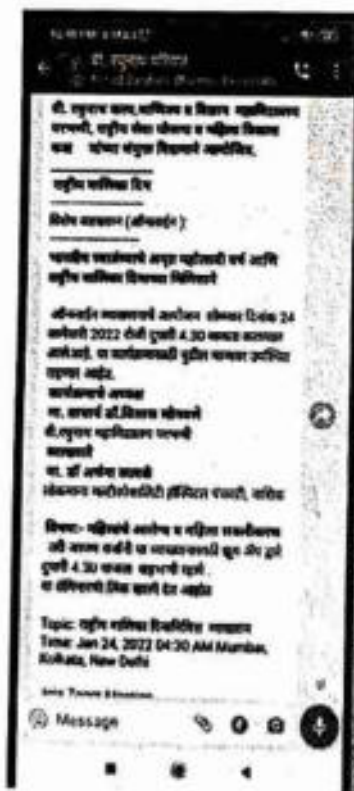 बी. रघुनाथ कला, वाणिज्य व विज्ञान महाविद्यालय
परभणी, राष्ट्रीय सेवा योजना व महिला विकास
कक्ष यांच्या संयुक्त विद्यमाने आयोजित,
राष्ट्रीय बालिका दिन
विशेष व्याख्यान (ऑनलाईन):
भारतीय स्वातंत्र्याचे अमृत महोत्सवी वर्ष आणि
राष्ट्रीय बालिका दिनाच्या निमित्ताने
ऑनलाईन व्याख्यानाचे आयोजन सोमवार दिनांक 24
जानेवारी 2022 रोजी दुपारी 4.30 वाजता करण्यात
आले आहे. या कार्यक्रमासाठी पुढील मान्यवर उपस्थित
राहणार आहेत.
कार्यक्रमाचे अध्यक्ष
मा. प्राचार्य डॉ.
बी.रघुनाथ महाविद्यालय परभणी
मा. डॉ
हॉस्पिटल पंचवटी, नाशिक
विषय:- महिलांचे आरोग्य व महिला सक्षमीकरण
तरी आपण सर्वांनी या व्याख्यानासाठी झूम ॲप द्वारे
दुपारी 4.30 वाजता सहभागी व्हावे.
लिंक खाली देत आहोत
Topic: राष्ट्रीय बालिका दिनानिमित्त व्याख्यान
Time: Jan 24, 2022 04:30 AM Mumbai,
Kolkata, New Delhi
Join Zoom Meeting
Message